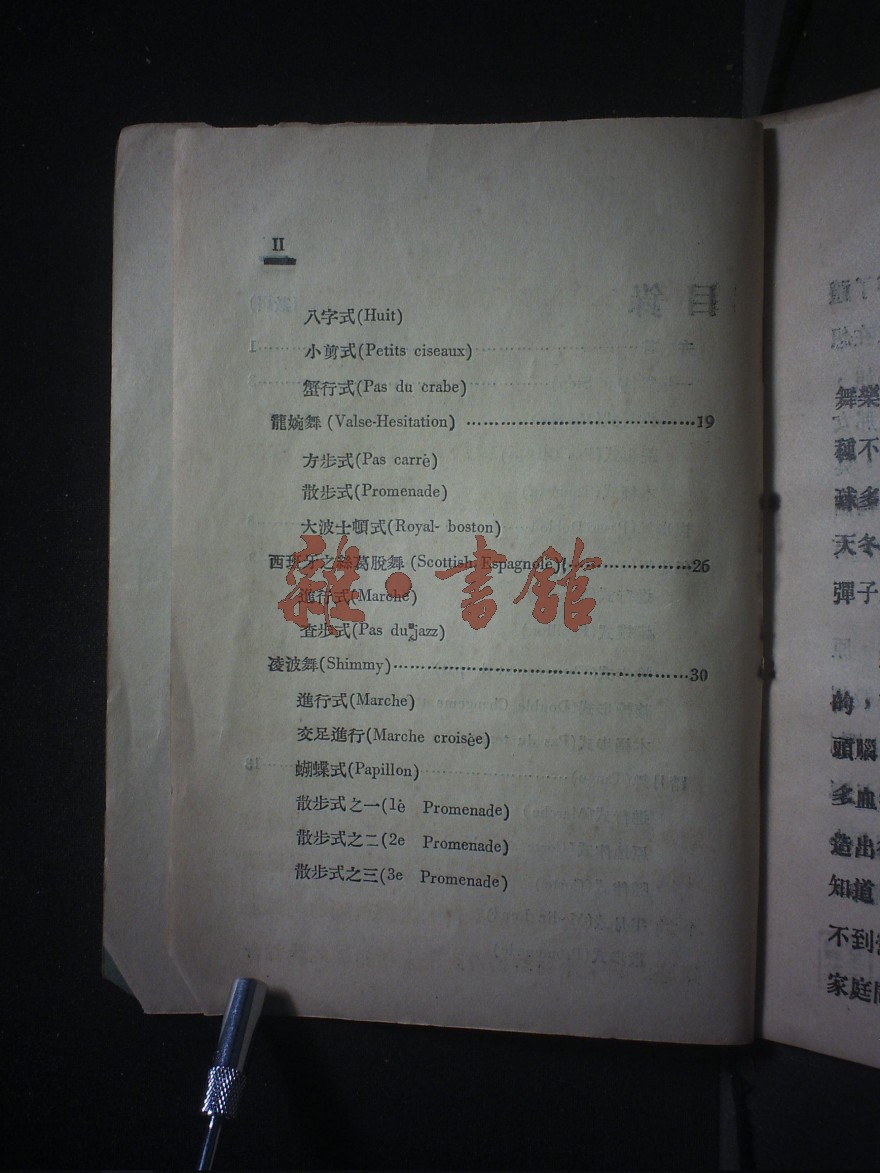 II
八字式(Huit)
小剪式(Petits ciseaux)
蟹行式(Pas du crabe)
龍婉舞 (Valse-Hesitation) ········································19
方步式(Pas carrè)
散步式(Promenade)
大波士頓式(Royal- boston)
西班牙之絲葛脫舞 (Scottish Espagnole)·····················26
進行式(Marche)
查步式(Pas du jazz)
凌波舞(Shimmy)··················································30
進行式(Marche)
交足進行(Marche croisèe)
蝴蝶式(Papillon)
散步式之一(1è Promenade)
散步式之二(2e Promenade)
散步式之三(3e Promenade)
雜·書館
目錄
舞樂
種不
球多
天冬
彈子
原
的，
頭腦
多血
造出
知道
不到
家庭